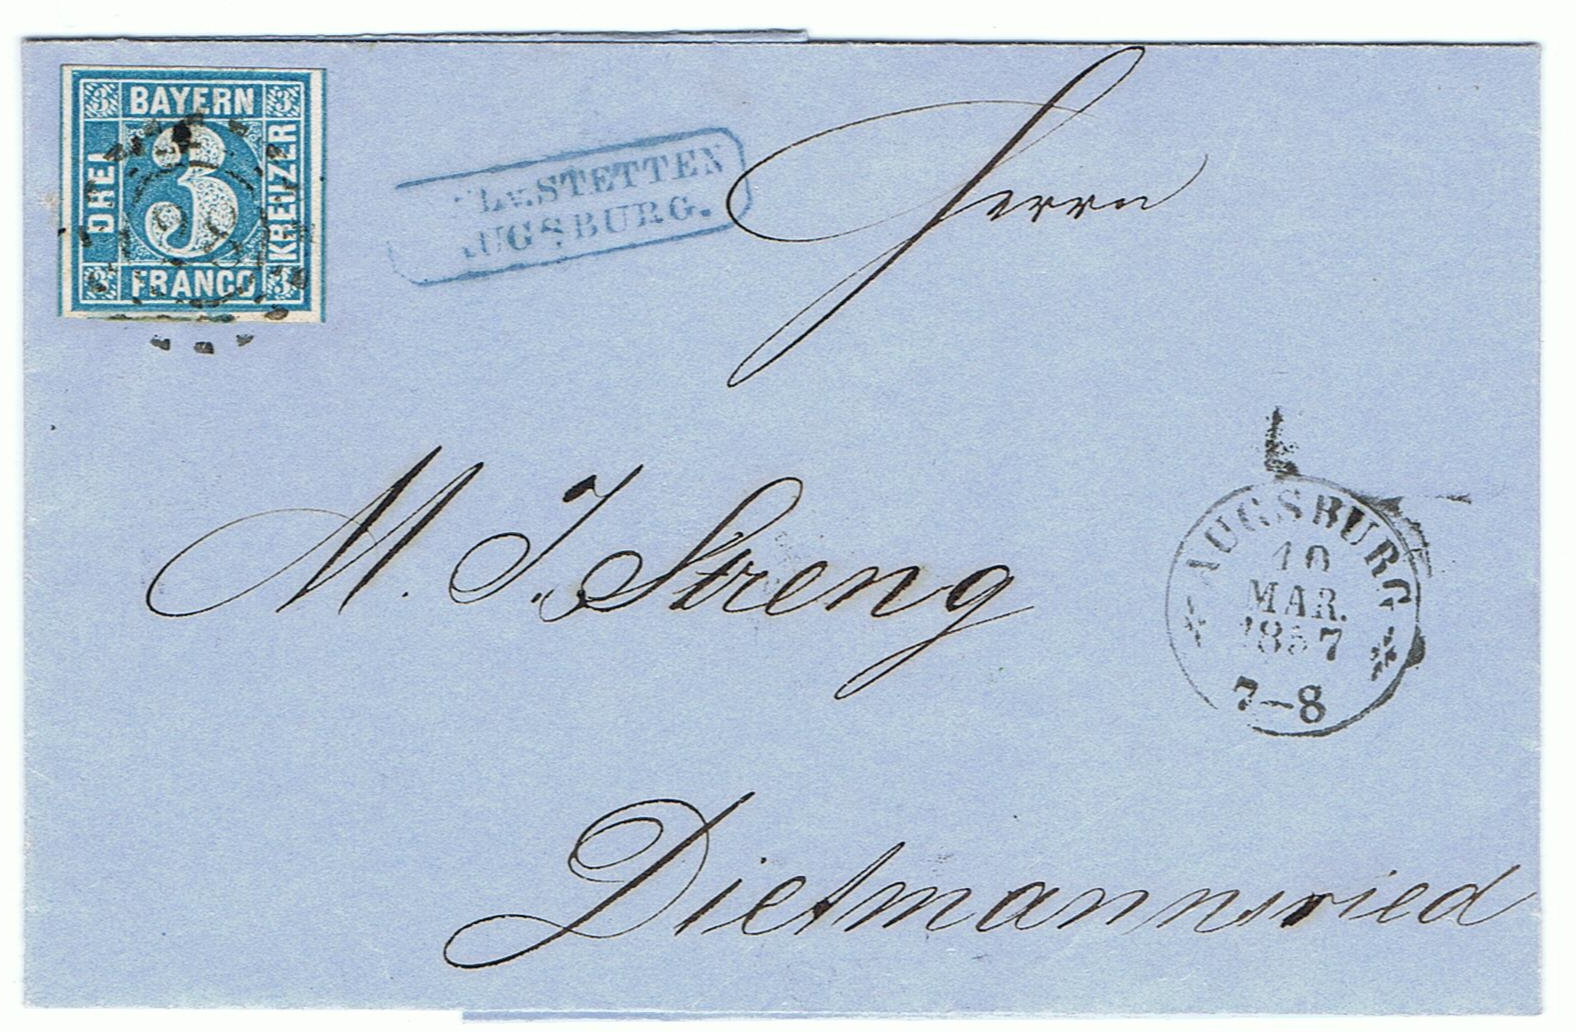 3 BAYERN 3
DREI 3 KREUZER
3 FRANCO 3
v. STETTEN
AUGSBURG.
Herrn
M. J. Streng
AUGSBURG
10
MAR.
1857
7-8
Dietmannsried